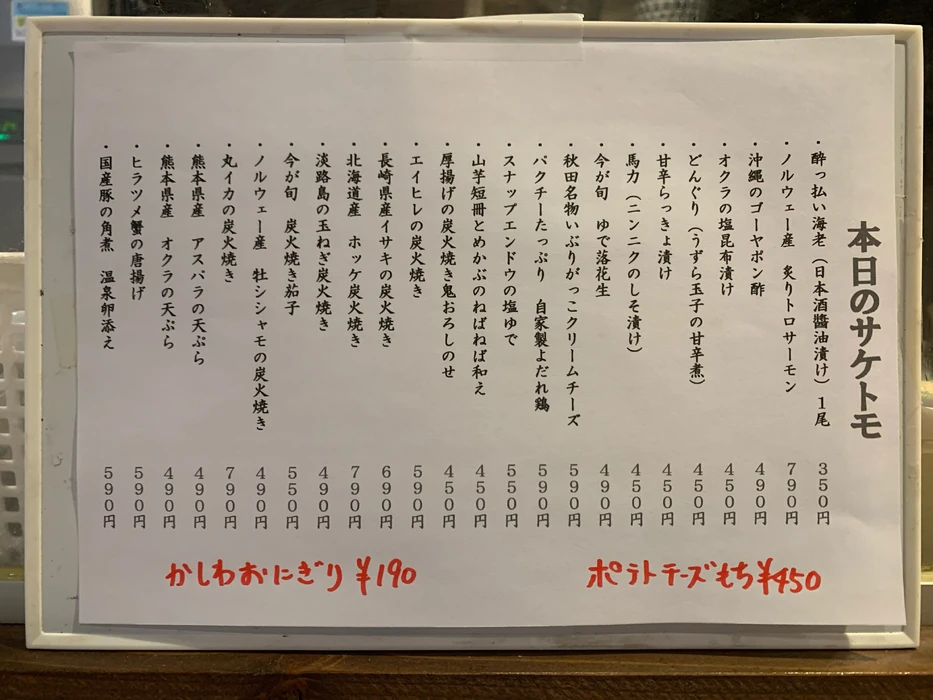 本日のサケトモ
・酔っ払い海老（日本酒醬油漬け）１尾 350円
・ノルウェー産 炙りトロサーモン 790円
・沖縄のゴーヤポン酢 490円
・オクラの塩昆布漬け 450円
・どんぐり（うずら玉子の甘辛煮） 450円
・甘辛らっきょ漬け 450円
・馬力（ニンニクのしそ漬け） 450円
・今が旬 ゆで落花生 490円
・秋田名物いぶりがっこクリームチーズ 590円
・パクチーたっぷり 自家製よだれ鶏 590円
・スナップエンドウの塩ゆで 550円
・山芋短冊とめかぶのねばねば和え 450円
・厚揚げの炭火焼き鬼おろしのせ 450円
・エイヒレの炭火焼き 590円
・長崎県産イサキの炭火焼き 690円
・北海道産 ホッケ炭火焼き 790円
・淡路島の玉ねぎ炭火焼き 490円
・今が旬 炭火焼き茄子 550円
・ノルウェー産 牡シシャモの炭火焼き 490円
・丸イカの炭火焼き 790円
・熊本県産 アスパラの天ぷら 490円
・熊本県産 オクラの天ぷら 490円
・ヒラツメ蟹の唐揚げ 590円
・国産豚の角煮 温泉卵添え 590円
ポテトチーズもち¥450
かしわおにぎり ¥190